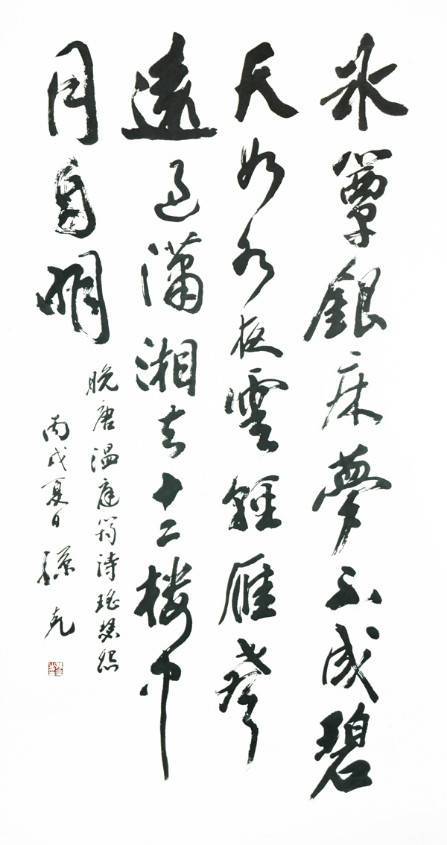 冰簟銀床夢不成碧
天如水夜雲輕雁聲
遠過瀟湘去十二楼中
月自明
晚唐温庭筠詩瑤瑟怨
丙戌夏日孫克